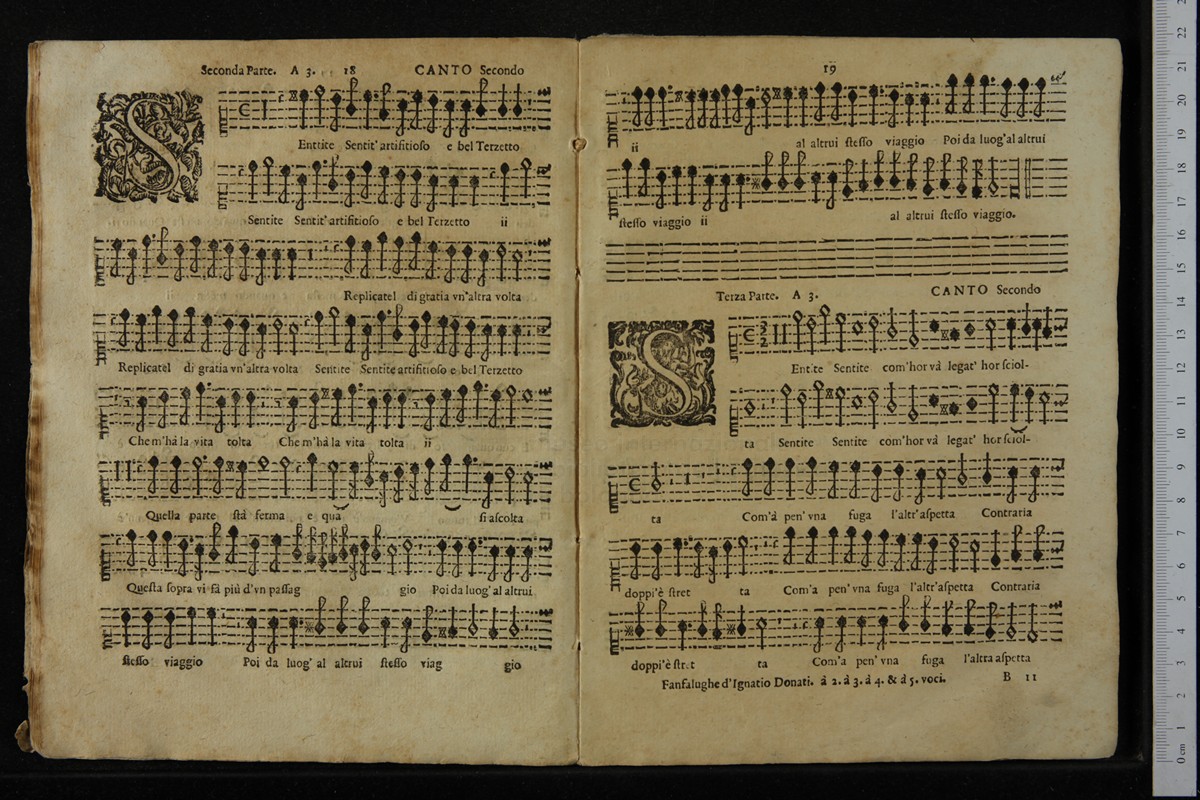 Seconda Parte. A 3. 18 CANTO Secondo
S
Enttite Sentit' artifitioso e bel Terzetto
Sentite Sentit' artifitioso e bel Terzetto ii
Replicatel di gratia vn'altra volta
Replicatel di gratia vn'altra volta Sentite Sentite artifitioso e bel Terzetto
Che m'hà la vita tolta Che m'hà la vita tolta ii
Quella parte stà ferma e quà si ascolta
Questa sopra vi fà più d'vn passag gio Poi da luog' al altrui
stesso viaggio Poi da luog' al altrui stesso viag gio
19
ii al altrui stesso viaggio Poi da luog' al altrui
stesso viaggio ii al altrui stesso viaggio.
Terza Parte. A 3. CANTO Secondo
S
Entite Sentite com'hor và legat' hor sciol-
ta Sentite Sentite com'hor và legat' hor sciol-
ta Com'à pen' vna fuga l'altr'aspetta Contraria
doppi'è stret ta Com'a pen' vna fuga l'altr'aspetta Contraria
doppi'è stret ta Com'a pen' vna fuga l'altra aspetta
Fanfalughe d'Ignatio Donati. à 2. à 3. à 4. & à 5. voci. B 11
0 cm 1 2 3 4 5 6 7 8 9 10 11 12 13 14 15 16 17 18 19 20 21 22